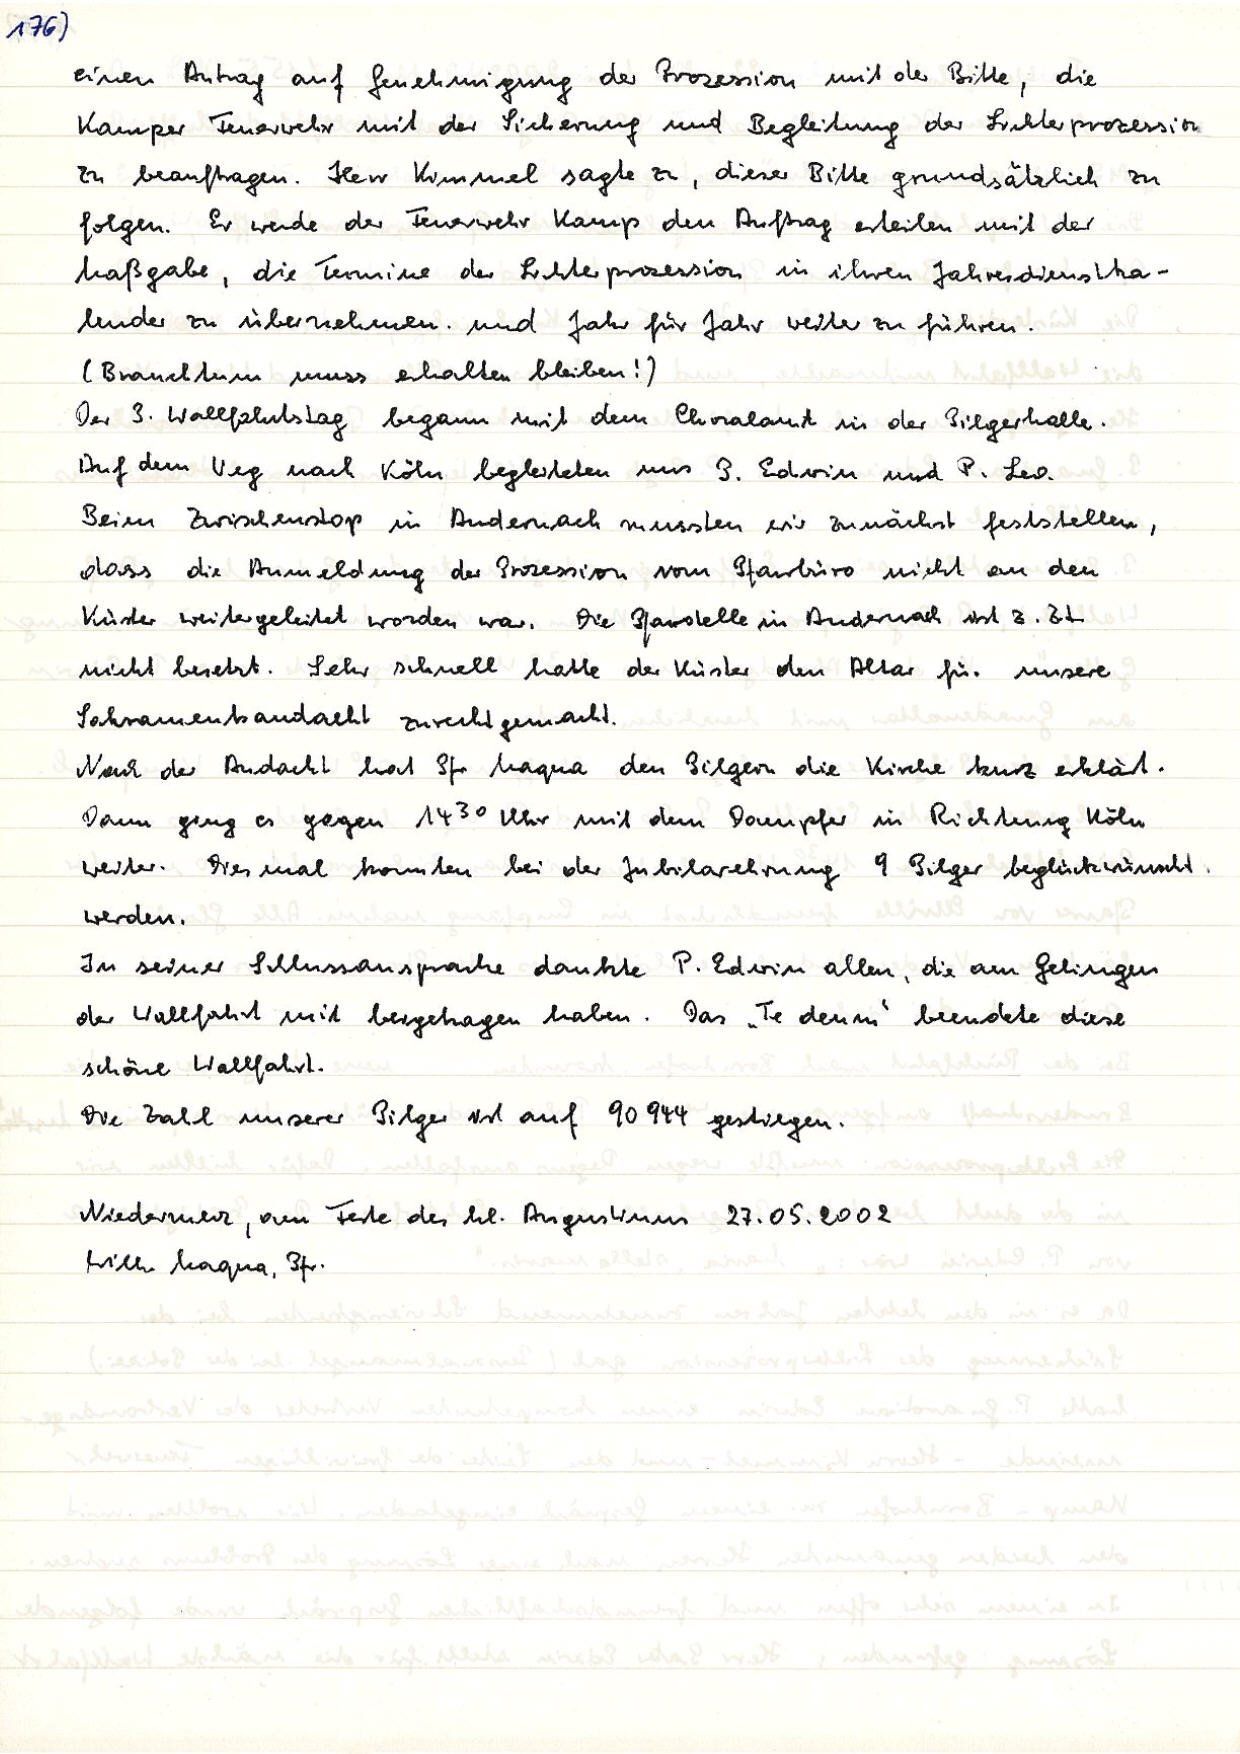 176)
einen Antrag auf Genehmigung der Prozession mit der Bitte, die
Kamper Feuerwehr mit der Sicherung und Begleitung der Lichterprozession
zu beauftragen. Herr Kimmel sagte zu, dieser Bitte grundsätzlich zu
folgen. Er werde der Feuerwehr Kamp den Auftrag erteilen mit der
Maßgabe, die Termine der Lichterprozession in ihren Jahresdienstka-
lender zu übernehmen. und Jahr für Jahr weiter zu führen.
(Brauchtum muss erhalten bleiben!)
Der 3. Wallfahrtstag begann mit dem Choralamt in der Pilgerhalle.
Auf dem Weg nach Köln begleiteten uns P. Edwin und P. Leo.
Beim Zwischenstop in Andernach mussten wir zunächst feststellen,
dass die Anmeldung der Prozession vom Pfarrbüro nicht an den
Küster weitergeleitet worden war. Die Pfarrstelle in Andernach ist z. Zt
nicht besetzt. Sehr schnell hatte der Küster den Altar für unsere
Sakramentsandacht zurechtgemacht.
Nach der Andacht hat Pfr Maqua den Pilgern die Kirche kurz erklärt.
Dann ging es gegen 14³⁰ Uhr mit dem Dampfer in Richtung Köln
weiter. Diesmal konnten bei der Jubilarehrung 9 Pilger beglückwünscht
werden.
In seiner Schlussansprache dankte P. Edwin allen, die am Gelingen
der Wallfahrt mit beigetragen haben. Das „Te deum“ beendete diese
schöne Wallfahrt.
Die Zahl unserer Pilger ist auf 90 944 gestiegen.
Niedermerz, am Feste des hl. Augustinus 27.05.2002
Maqua, Pfr.